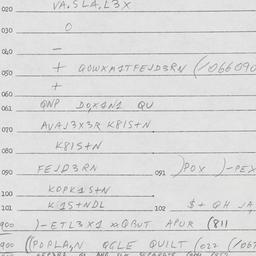 020 VA.SLA,L3X
030 O
040 -
050 + QOWXM1TFEJD3RN (/066090
060 +
061 QNP DQX1N1 QU
070 AVAJ3X3R K8IS+N
080 K8IS+N
090 FEJD3RN 091 )POX )-PEX
100 KOPK1S+N
101 K1S+NDL 102 $+ QH JA
900 )-ETL3X1 *QBUT APUR (811
900 ((POPLA,N QGLE QUILT (022 (/067